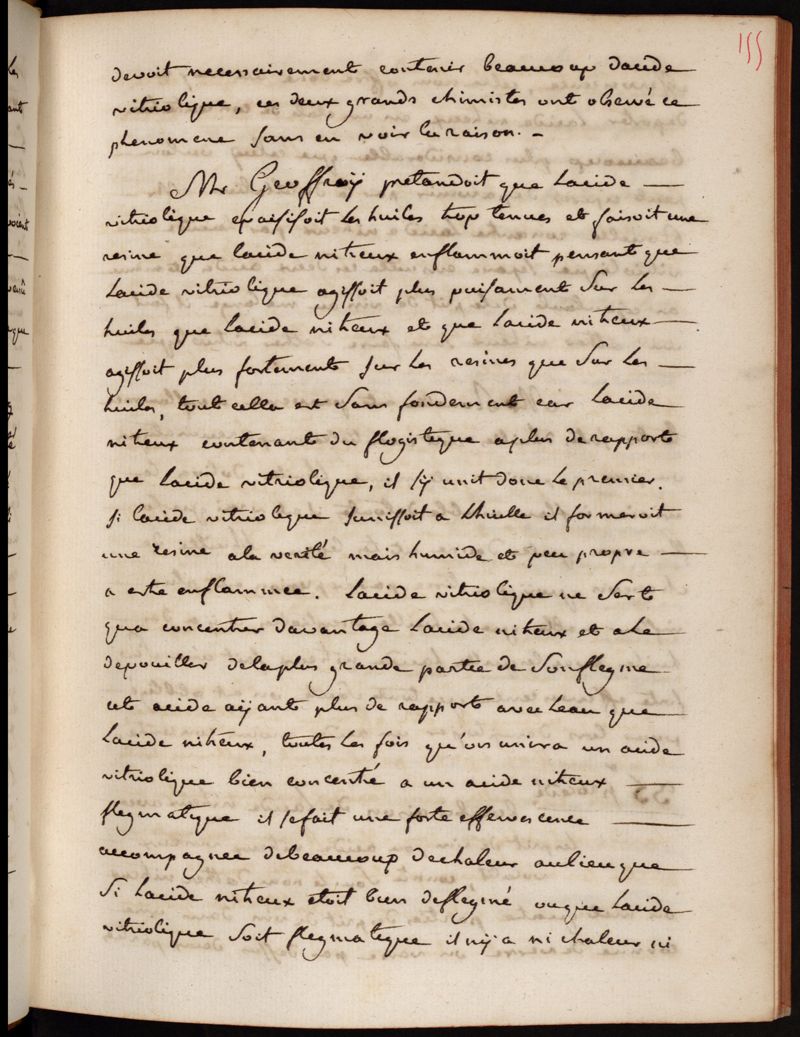 155
devoit necessairement contenir beaucoup dacide
vitriolique, ces deux grands chimistes ont observé ce
phenomene sans en voir la raison. -
Mr Geoffroÿ pretandoit que Lacide —
vitriolique epaisissoit les huiles trop tenues et faisoit une
resine que lacide nitreux enflammoit pensant que
Lacide vitriolique agissoit plus puisament sur les —
huiles que lacide nitreux et que lacide nitreux —
agissoit plus fortement sur les resines que sur les —
huiles, tout cella est sans fondement car lacide
nitreux contenant du flogistique a plus de rapport
que lacide vitriolique, il sÿ unit donc le premier.
si lacide vitriolique sunissoit a Lhuille il formeroit
une resine a la verité mais humide et peu propre —
a estre enflammee. Lacide vitriolique ne sert
qua concentrer davantage Lacide nitreux et a Le
depouiller de la plus grande partie de son flegme
cet acide aÿant plus de rapport avec Leau que
Lacide nitreux, toutes les fois qu'on unira un acide
vitriolique bien concentré a un acide nitreux —
flegmatique il se fait une forte effervescence —
accompagnee de beaucoup de chaleur au lieu que
si Lacide nitreux etoit bien deflegmé ou que Lacide
vitriolique soit flegmatique il nÿ a ni chaleur ni